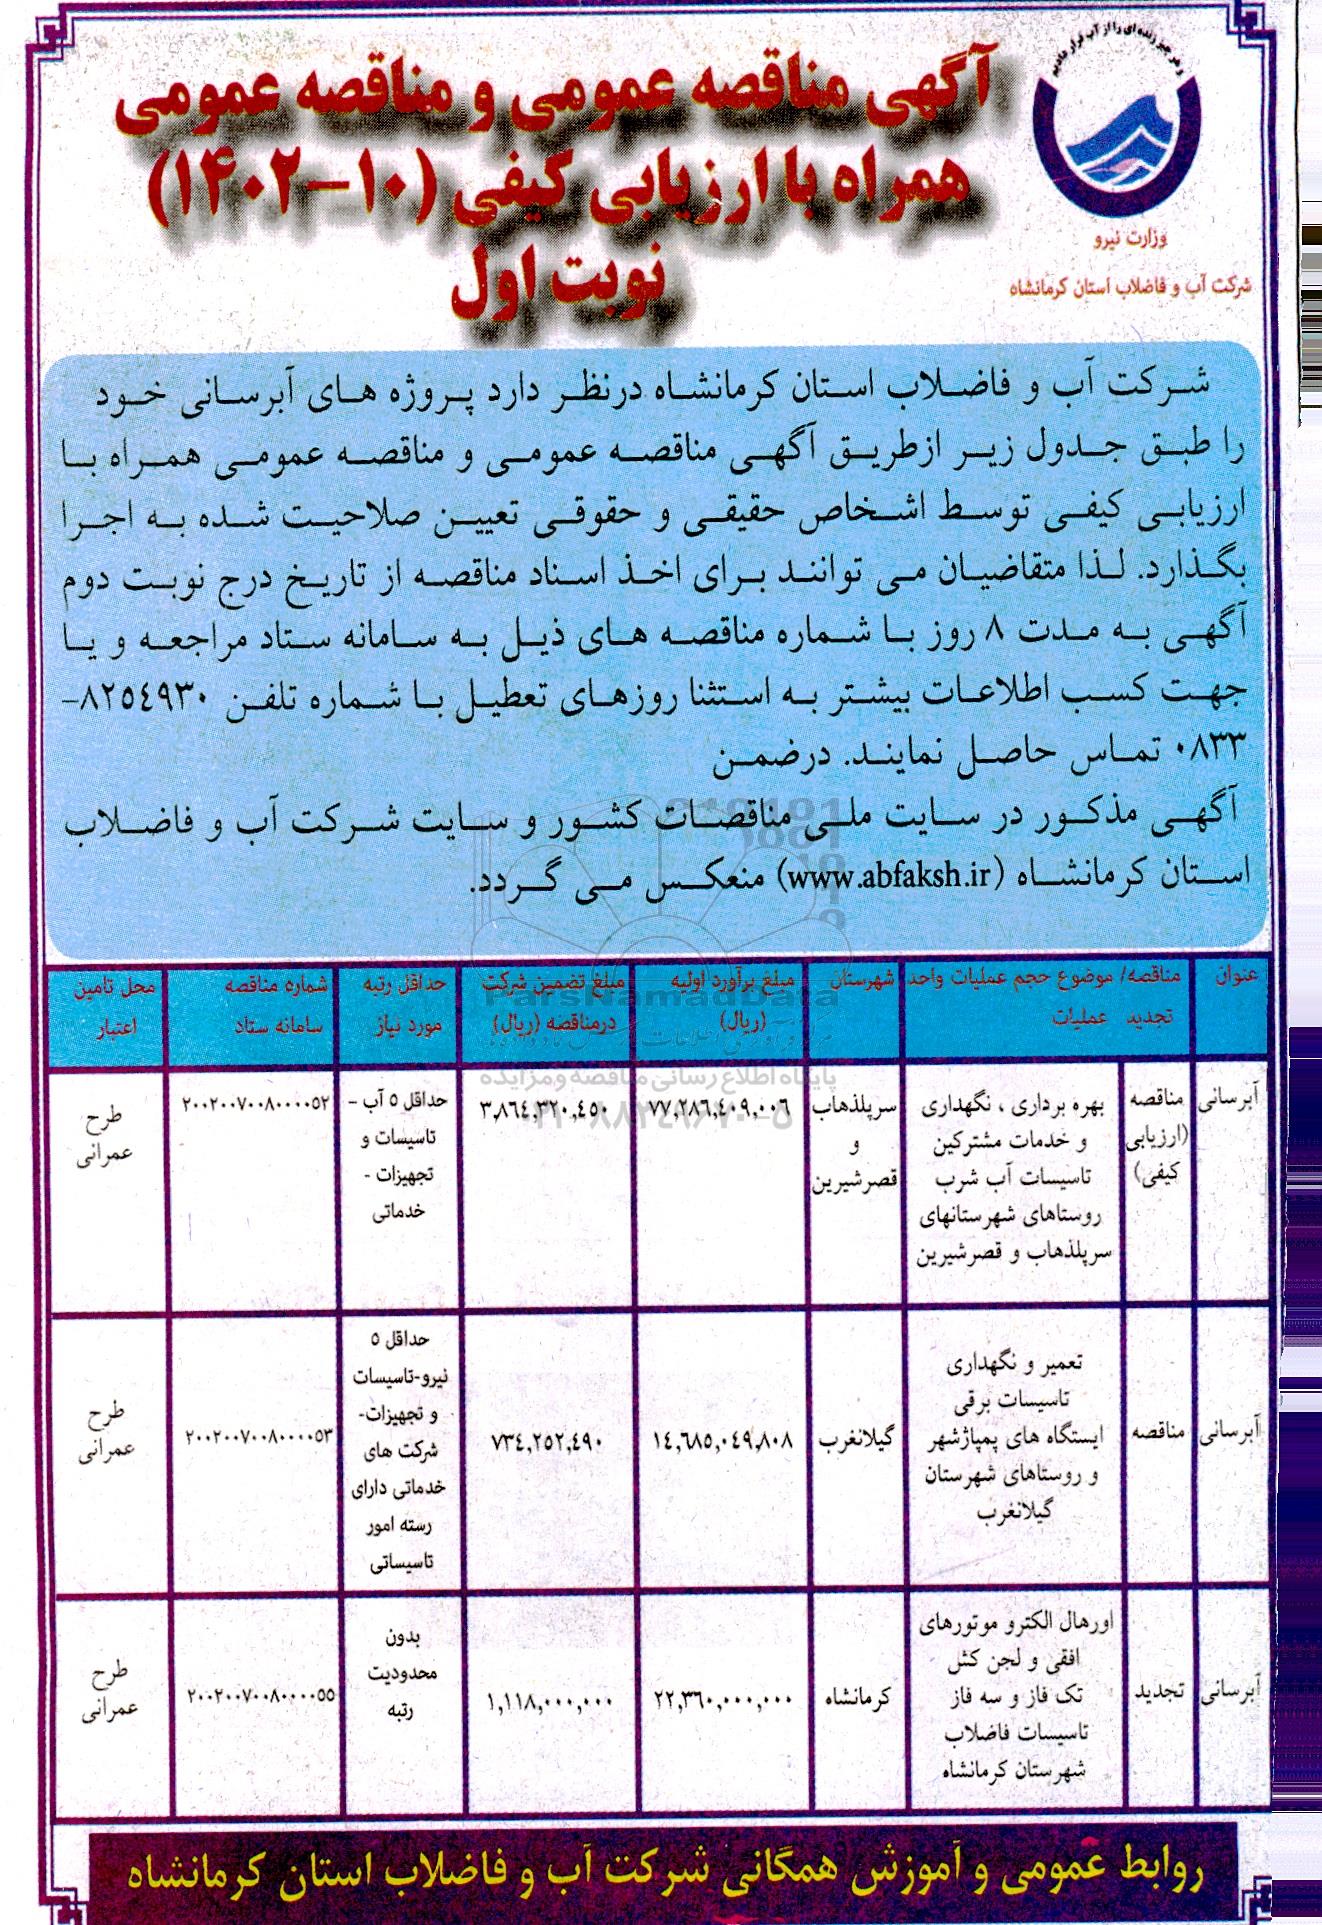 و هر چیز زنده ای را از آب قرار دادیم
وزارت نیرو
شرکت آب و فاضلاب استان کرمانشاه
آگهی مناقصه عمومی و مناقصه عمومی
همراه با ارزیابی کیفی (۱۰-۱۴۰۲)
نوبت اول
شرکت آب و فاضلاب استان کرمانشاه درنظر دارد پروژه های آبرسانی خود
را طبق جدول زیر ازطریق آگهی مناقصه عمومی و مناقصه عمومی همراه با
ارزیابی کیفی توسط اشخاص حقیقی و حقوقی تعیین صلاحیت شده به اجرا
بگذارد. لذا متقاضیان می توانند برای اخذ اسناد مناقصه از تاریخ درج نوبت دوم
آگهی به مدت ۸ روز با شماره مناقصه های ذیل به سامانه ستاد مراجعه و یا
جهت کسب اطلاعات بیشتر به استثنا روزهای تعطیل با شماره تلفن ۸۲۵۴۹۳۰-
۰۸۳۳ تماس حاصل نمایند. درضمن
آگهی مذکور در سایت ملی مناقصات کشور و سایت شرکت آب و فاضلاب
استان کرمانشاه (www.abfaksh.ir) منعکس می گردد.
عنوان
مناقصه/
تجدید
موضوع حجم عملیات واحد
عملیات
شهرستان
مبلغ برآورد اولیه
(ریال)
مبلغ تضمین شرکت
درمناقصه (ریال)
حداقل رتبه
مورد نیاز
شماره مناقصه
سامانه ستاد
محل تامین
اعتبار
آبرسانی
مناقصه
(ارزیابی
کیفی)
بهره برداری ، نگهداری
و خدمات مشترکین
تاسیسات آب شرب
روستاهای شهرستانهای
سرپلذهاب و قصرشیرین
سرپلذهاب
و
قصرشیرین
۷۷,۲۸۶,۴۰۹,۰۰۶
۳,۸۶۴,۳۲۰,۴۵۰
حداقل ۵ آب -
تاسیسات و
تجهیزات -
خدماتی
۲۰۰۲۰۰۷۰۰۸۰۰۰۰۵۲
طرح
عمرانی
آبرسانی
مناقصه
تعمیر و نگهداری
تاسیسات برقی
ایستگاه های پمپاژشهر
و روستاهای شهرستان
گیلانغرب
گیلانغرب
۱۴,۶۸۵,۰۴۹,۸۰۸
۷۳۴,۲۵۲,۴۹۰
حداقل ۵
نیرو-تاسیسات
و تجهیزات-
شرکت های
خدماتی دارای
رسته امور
تاسیساتی
۲۰۰۲۰۰۷۰۰۸۰۰۰۰۵۳
طرح
عمرانی
آبرسانی
تجدید
اورهال الکترو موتورهای
افقی و لجن کش
تک فاز و سه فاز
تاسیسات فاضلاب
شهرستان کرمانشاه
کرمانشاه
۲۲,۳۶۰,۰۰۰,۰۰۰
۱,۱۱۸,۰۰۰,۰۰۰
بدون
محدودیت
رتبه
۲۰۰۲۰۰۷۰۰۸۰۰۰۰۵۵
طرح
عمرانی
ParsNamadData
پایگاه اطلاع رسانی مناقصه و مزایده
روابط عمومی و آموزش همگانی شرکت آب و فاضلاب استان کرمانشاه